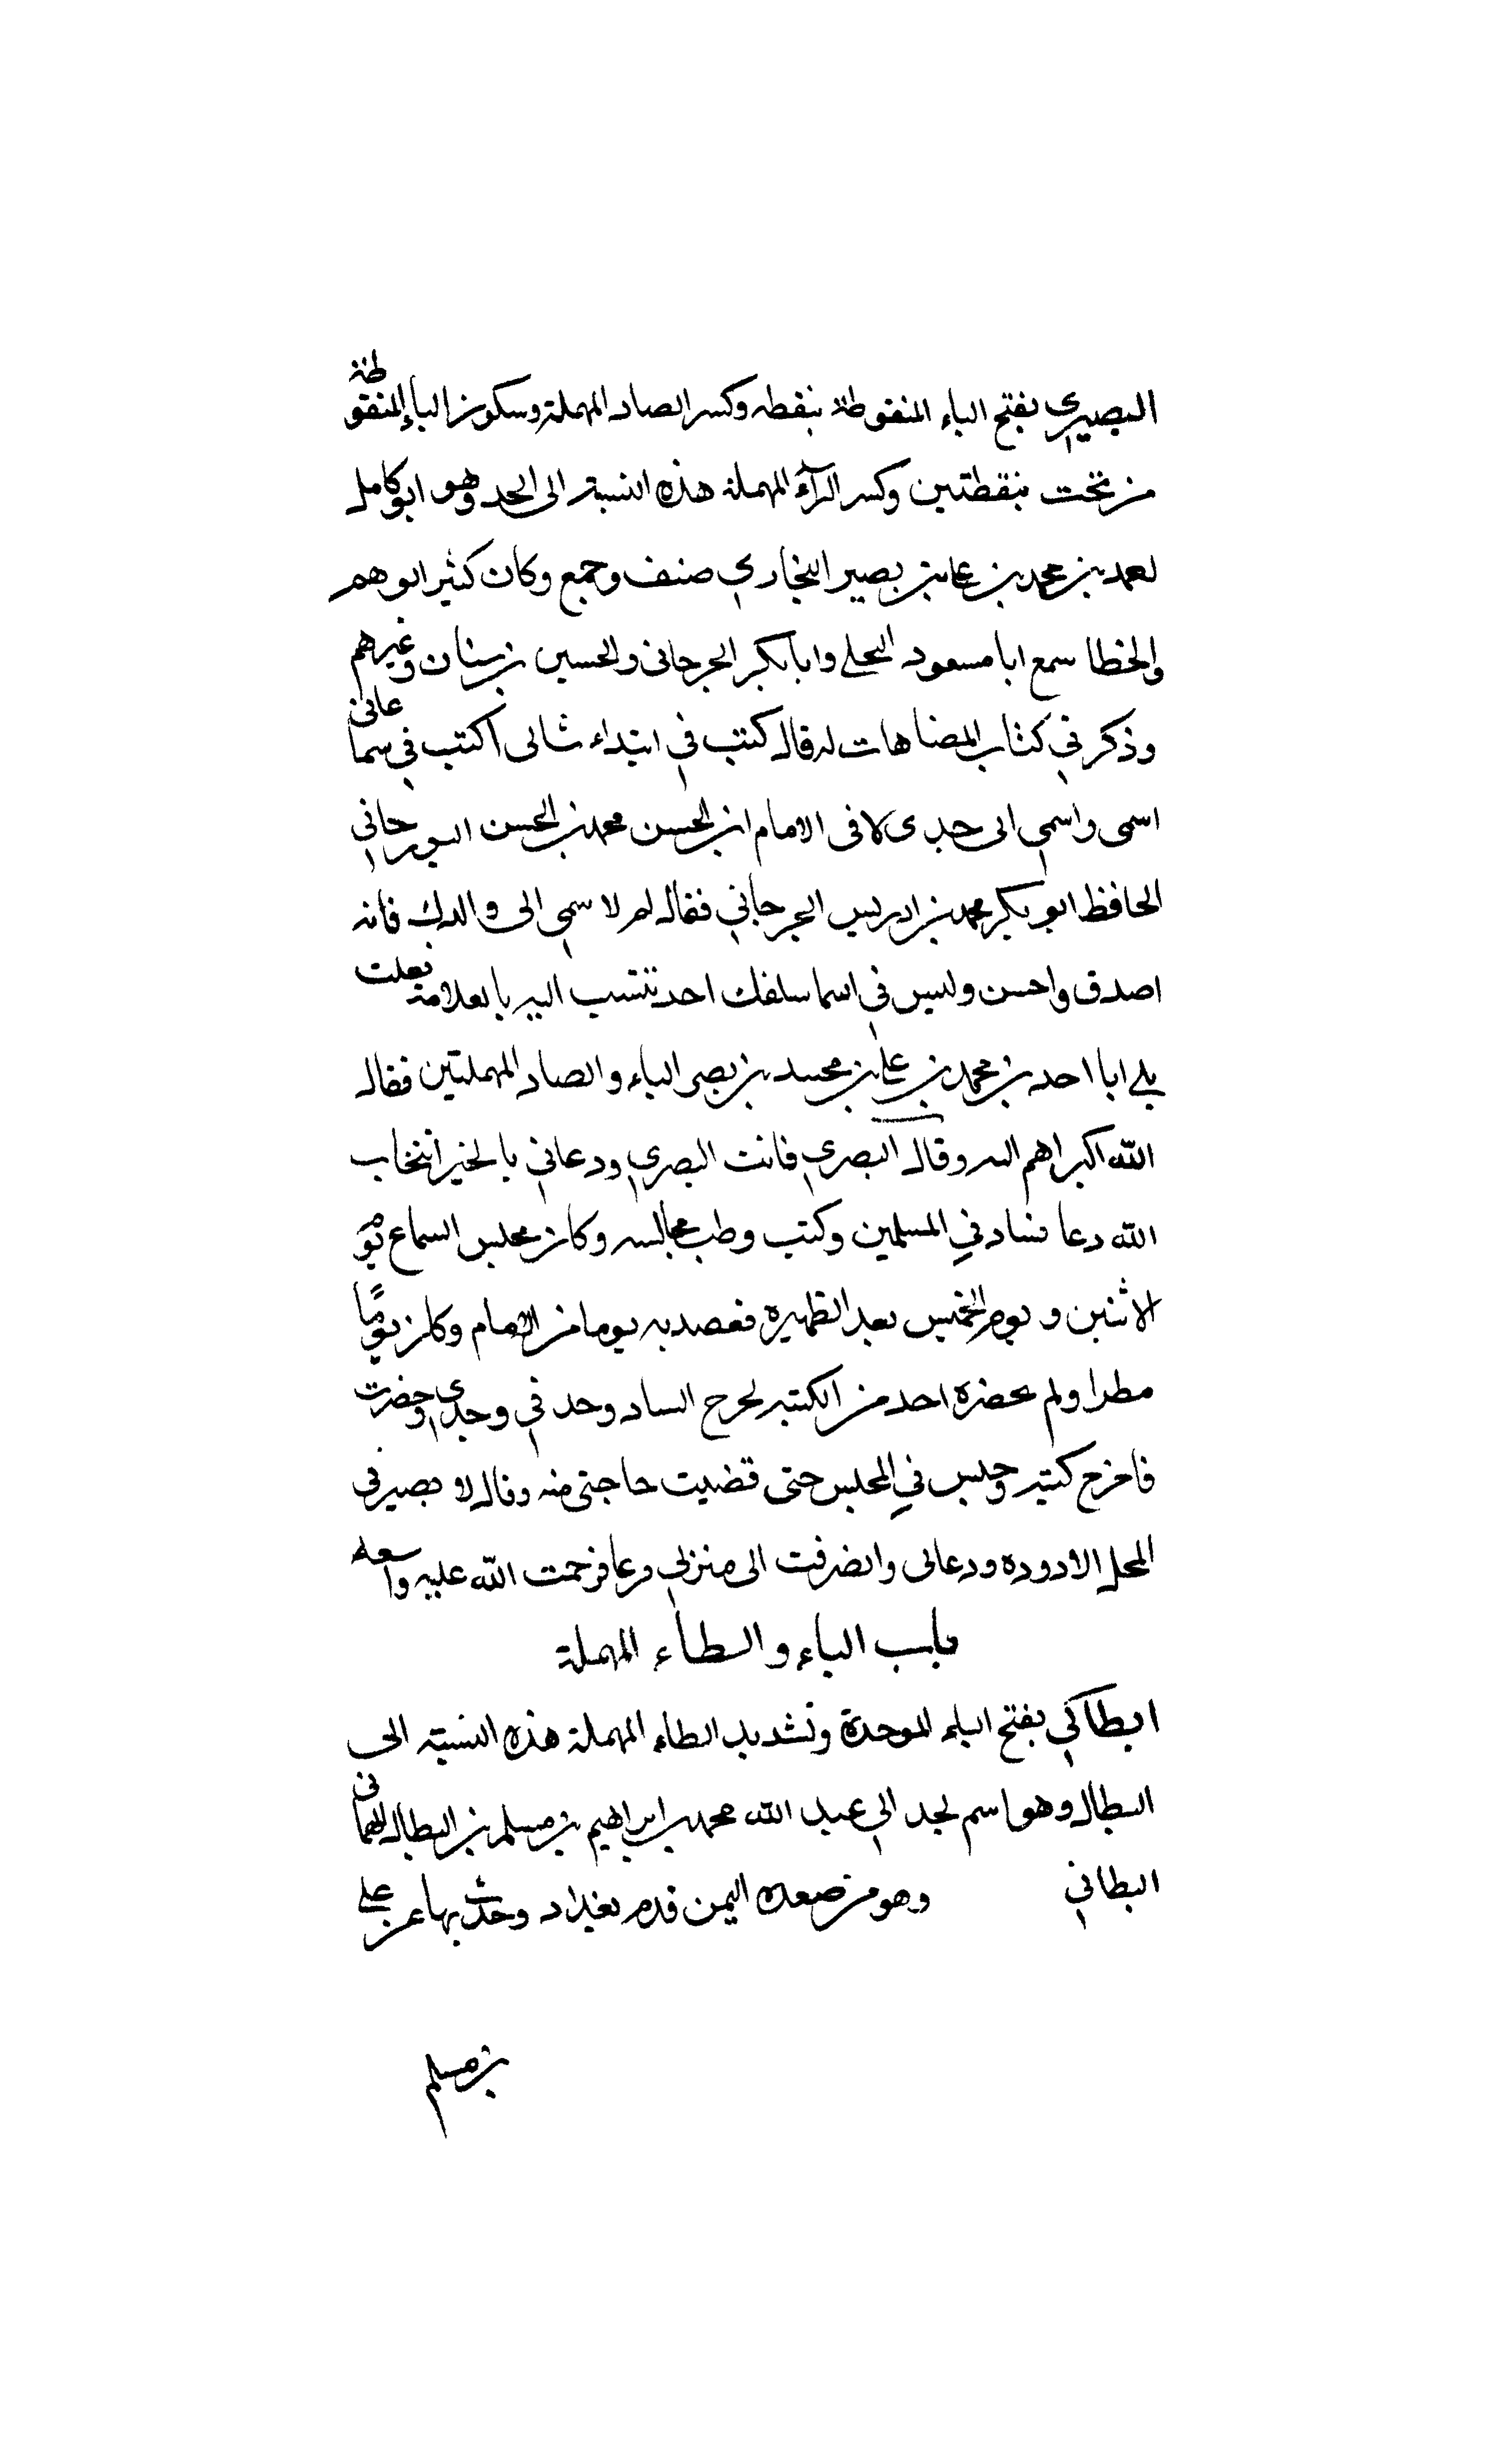 البصيري بفتح الباء المنقوطة بنقطه وكسر الصاد المهملة وسكون الياء المنقوطة
من تحت بنقطتين وكسر الرآء المهملة هذه النسبة الى الجد وهو ابو كامل
احمد بن محمد بن علي بن بصير البخاري صنف وجمع وكان كثير الوهم
والخطا سمع ابا مسعود البجلي وابا بكر الجرجاني والحسين بن سنان وغيرهم
وذكر في كتاب المضاهات له قال كنت في ابتداء شاني اكتب في سماعاتي
اسمي واسم ابي جدي الامام ابن الحسن محمد بن الحسن
الحافظ ابو بكر محمد بن ادريس الجرجاني فقال لم لا سمي الى والدك فانه
اصدق واحسن وليس في اسما سلفك احد تنتسب اليه بالعلامة فعلت
بلى ابا احمد بن محمد بن علي بن محمد بن بصير الباء والصاد المهملتين فقال
الله اكبر وقال البصري فانت البصري ودعاني بالخير انتخاب
الله دعا في المسلمين وكتب مجالسه وكان مجلس السماع يوم
الاثنين و يوم الخميس بعد الظهيرة فقصد به يوما من الايام وكان يومًا
مطرا ولم يحضره احد من الكتبه وحدي وحضرت
فاخرج كتبه وجلس في المجلس حتى قضيت حاجتى منه وقال لا
ودعالى وانصرفت الى منزلي فرحمت الله عليه واسعه
باب الباء والطاء المهملة
البطالي بفتح الباء الموحدة وتشديد الطاء المهملة هذه النسبة الى
البطال وهو اسم لجد ابي عبد الله محمد بن ابراهيم بن مسلم بن البطال اليماني
البطاني وهو من صعده اليمن قدم بغداد وحدث بها عن علي
بن مسلم